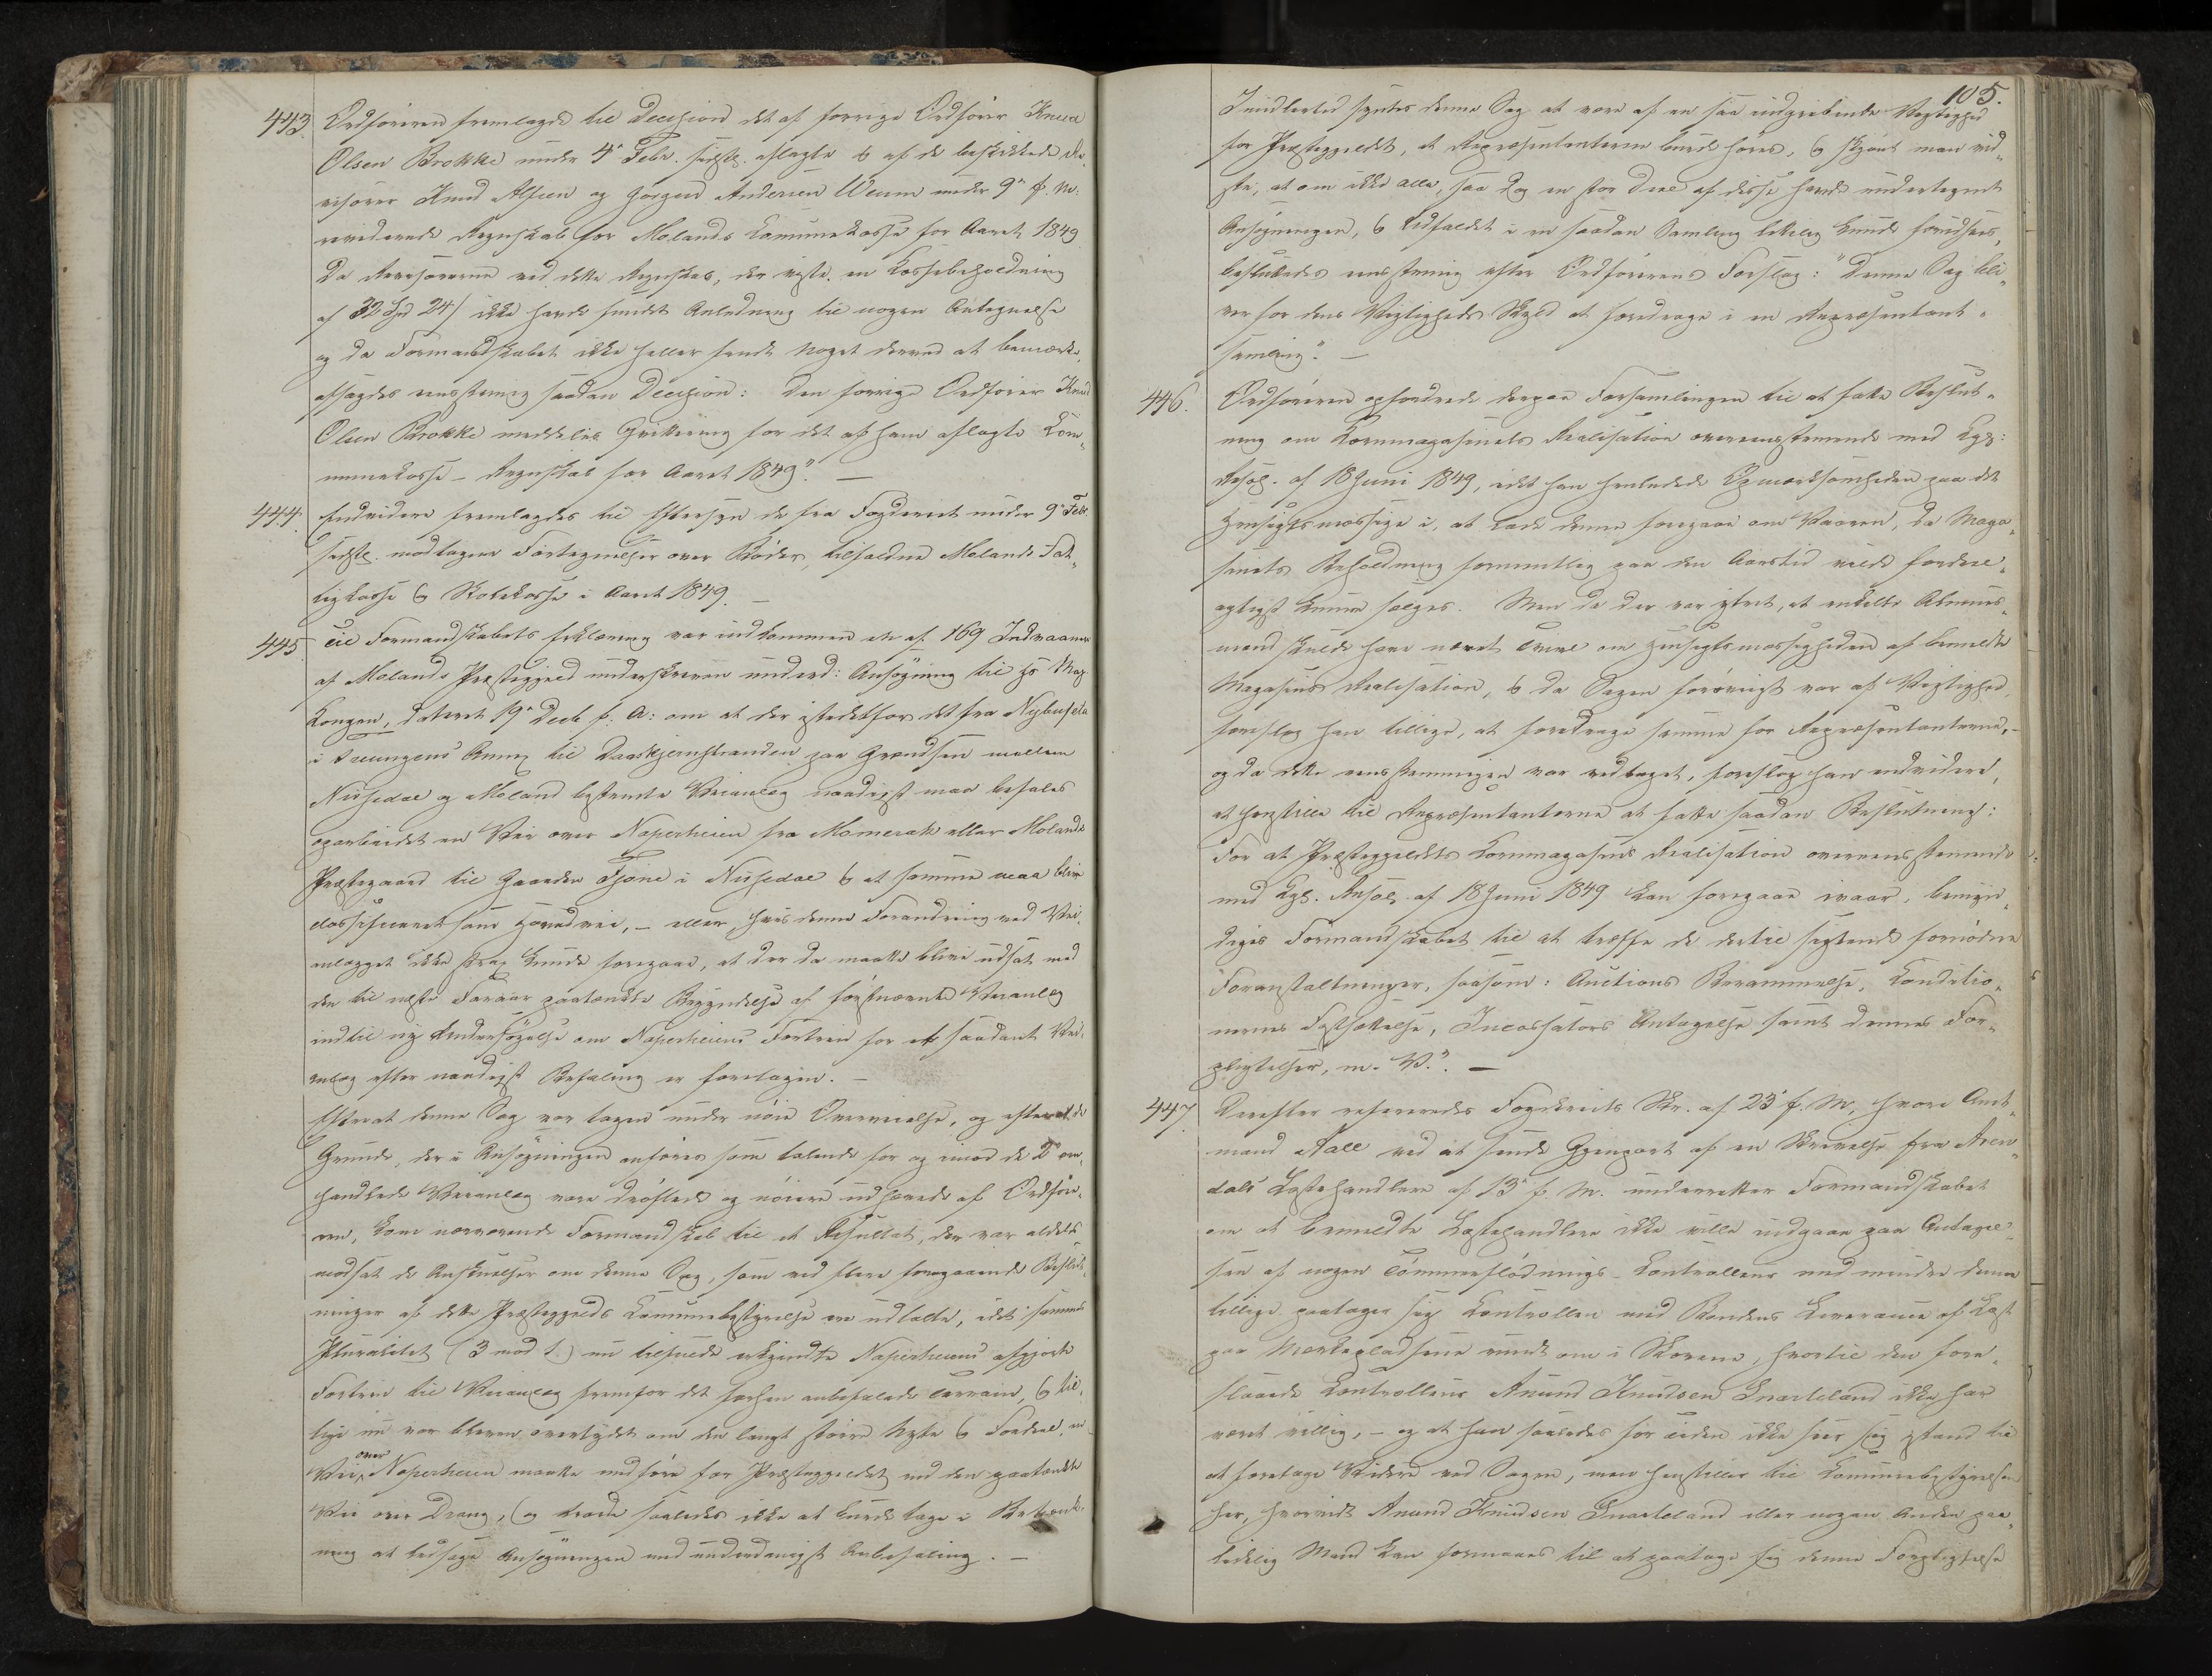 443. Ordføreren fremlagde til Decision det af forrige Ordfører Knud
Olsen Brokke under 4de Febr. sidstl. aflagte & af de beskikkede Re-
visorer Knud Alfsen og Jørgen Andersen Weum under 9de f. M.
reviderede Regnskab for Molands Communekasse for Aaret 1849
Da Revisorerne ved dette Regnskab, der viste en Cassebeholdning
af 32 Spd 24 s ikke havde fundet Anledning til nogen Antegnelse
og da Formandskabet ikke heller fandt noget derved at bemærke,
afsagdes eenstemmig saadan Decision: Den forrige Ordfører Knud
Olsen Brokke meddeles Qvittering for det af ham aflagte Com-
munekasse-Regnskab for Aaret 1849". —
444. Endvidere fremlagdes til Eftersyn de fra Fogderiet under 9de Febr.
sidstl. modtagne Fortegnelser over Bøder, tilfaldne Molands Fat-
tigkasse & Skolekasse i Aaret 1849. —
445. Til Formandskabets Erklæring var indkommen en af 169 Indvaanere
af Molands Præstegjeld underskreven underd: Ansøgning til Hs Maj.
Kongen, dateret 19de Decb f. A: om at der istedetfor det fra Nybuseta
i Treungens Annex til Daaskjernstranden paa Grændsen mellem
Nissedal og Moland bestemte Veianlæg naadigst maa befales
oparbeidet en Vei over Naperheien fra Momerak eller Molands
Præstegaard til Gaarden Tjøne i Nissedal & at samme maa blive
classificeret som Hovedvei, — eller, hvis denne Forandring ved Vei-
anlægget ikke strax kunde foregaae, at der da maatte blive udsat med
den til næste Foraar paatænkte Begyndelse af førstnævnte Veianlæg
indtil ny Undersøgelse om Naperheiens Fortrin for et saadant Vei-
anlæg efter naadigst Befaling er foretagen. —
Efterat denne Sag var tagen under nøie Overveielse, og efterat de
Grunde, der i Ansøgningen anføres som talende for og imod de 2de om-
handlede Veianlæg vare drøftede og nøiere udhævede af Ordføre-
ren, kom nærværende Formandskab til et Resultat, der var aldeles
modsat de Anskuelser om denne Sag, som ved flere foregaaende Beslut-
ninger af dette Præstegjelds Communebestyrelse ere udtalte, idet sammes
Pluralitet (3 mod 1.) nu tilfulde erkjendte Naperheiens afgjorte
Fortrin til Veianlæg fremfor det forhen anbefalede Terrain, & til-
lige nu var bleven overtydet om den langt større Nytte & Fordeel, en
Vei over Naperheien maatte medføre for Præstegjeldet end den paatænkte
Vei over Drang, og troede saaledes ikke at burde tage i Betænk-
ning at ledsage Ansøgningen med underdanigst Anbefaling. —
105.
Imidlertid syntes denne Sag at være af en saa indgribende Vigtighed
for Præstegjeldet, at Repræsentanterne burde høres, & skjønt man vid-
ste, at om ikke alle, saa dog en stor Deel af disse havde undertegnet
Ansøgningen, & Udfaldet i en saadan Samling letelig kunde forudsees,
besluttedes eenstemmig efter Ordførerens Forslag: "Denne Sag bli-
ver for dens Vigtigheds Skyld at foredrage i en Repræsentant-
samling". —
446. Ordføreren opfordrede derpaa Forsamlingen til at fatte Beslut-
ning om Kornmagasinets Realisation overeensstemmende med Kgl:
Resol. af 18 Juni 1849, idet han henledede Opmærksomheden paa det
Hensigtsmæssige i, at lade denne foregaae om Vaaren, da Maga-
sinets Beholdning formentlig paa den Aarstid vilde fordeel-
agtigst kunne sælges. Men da der var ytret, at enkelte Almues-
mænd skulde have næret Tvivl om Hensigtsmæssigheden af bemeldte
Magasins Realisation, & da Sagen forøvrigt var af Vigtighed,
foreslog han tillige, at foredrage samme for Repræsentanterne, —
og da dette eenstemmigen var vedtaget, foreslog han endvidere,
at henstille til Repræsentanterne at fatte saadan Beslutning:
For at Præstegjeldets Kornmagasins Realisation overeensstemmende
med Kgl. Resol. af 18 Juni 1849 kan foregaae ivaar, bemyn-
diges Formandskabet til at træffe de dertil sigtende fornødne
Foranstaltninger, saasom: Auctions Berammelse, Conditio-
nernes Fastsættelse, Incassators Antagelse samt dennes For-
pligtelser, m. V.". —
447. Derefter refereredes Fogderiets Skr. af 23de f. M., hvori Amt-
mand Aall ved at sende Gjenpart af en Skrivelse fra Aren-
dals Lastehandlere af 13de f. M. underretter Formandskabet
om at bemeldte Lastehandlere ikke ville indgaae paa Antagel-
sen af nogen Tømmerflødnings-Controlleur med mindre denne
tillige paatager sig Controllen med Bondens Leverance af Last
paa Mærkepladsene rundt om i Skovene, hvortil den fore-
slaaede Controlleur Anund Knudsen Snarteland ikke har
været villig, — og at han saaledes for Tiden ikke seer sig istand til
at foretage Videre ved Sagen, men henstiller til Communebestyrelsen
her, hvorvidt Anund Knudsen Snarteland eller nogen Anden paa-
lidelig Mand kan formaaes til at paatage sig denne Forpligtelse